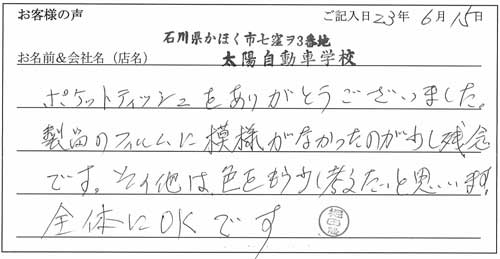 お客様の声 ご記入日23年6月15日
石川県かほく市七窪ヲ3番地
お名前&会社名(店名) 太陽自動車学校
ポケットティッシュをありがとうございました。
製品のフィルムに模様がなかったのが少し残念
です。その他は、色をもう少し考えたいと思います。
全体にOKです